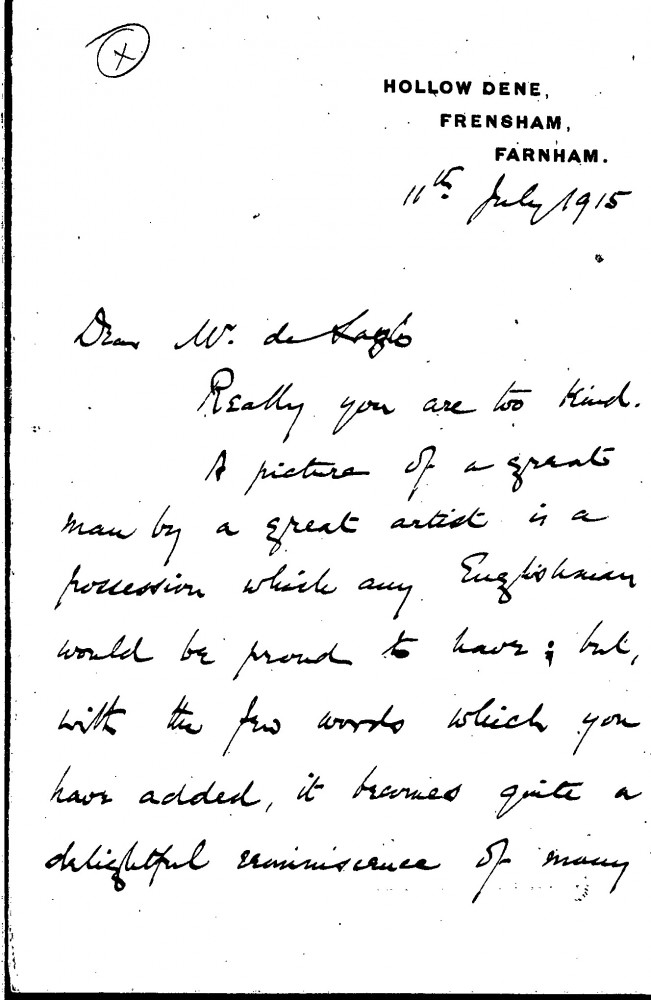 HOLLOW DENE,
FRENSHAM,
FARNHAM.
11th July 1915
Dear Mr. de Laszlo
Really you are too kind.
A picture of a great
man by a great artist is a
possession which any Englishman
would be proud to have; but,
with the few words which you
have added, it becomes quite a
delightful reminiscence of many